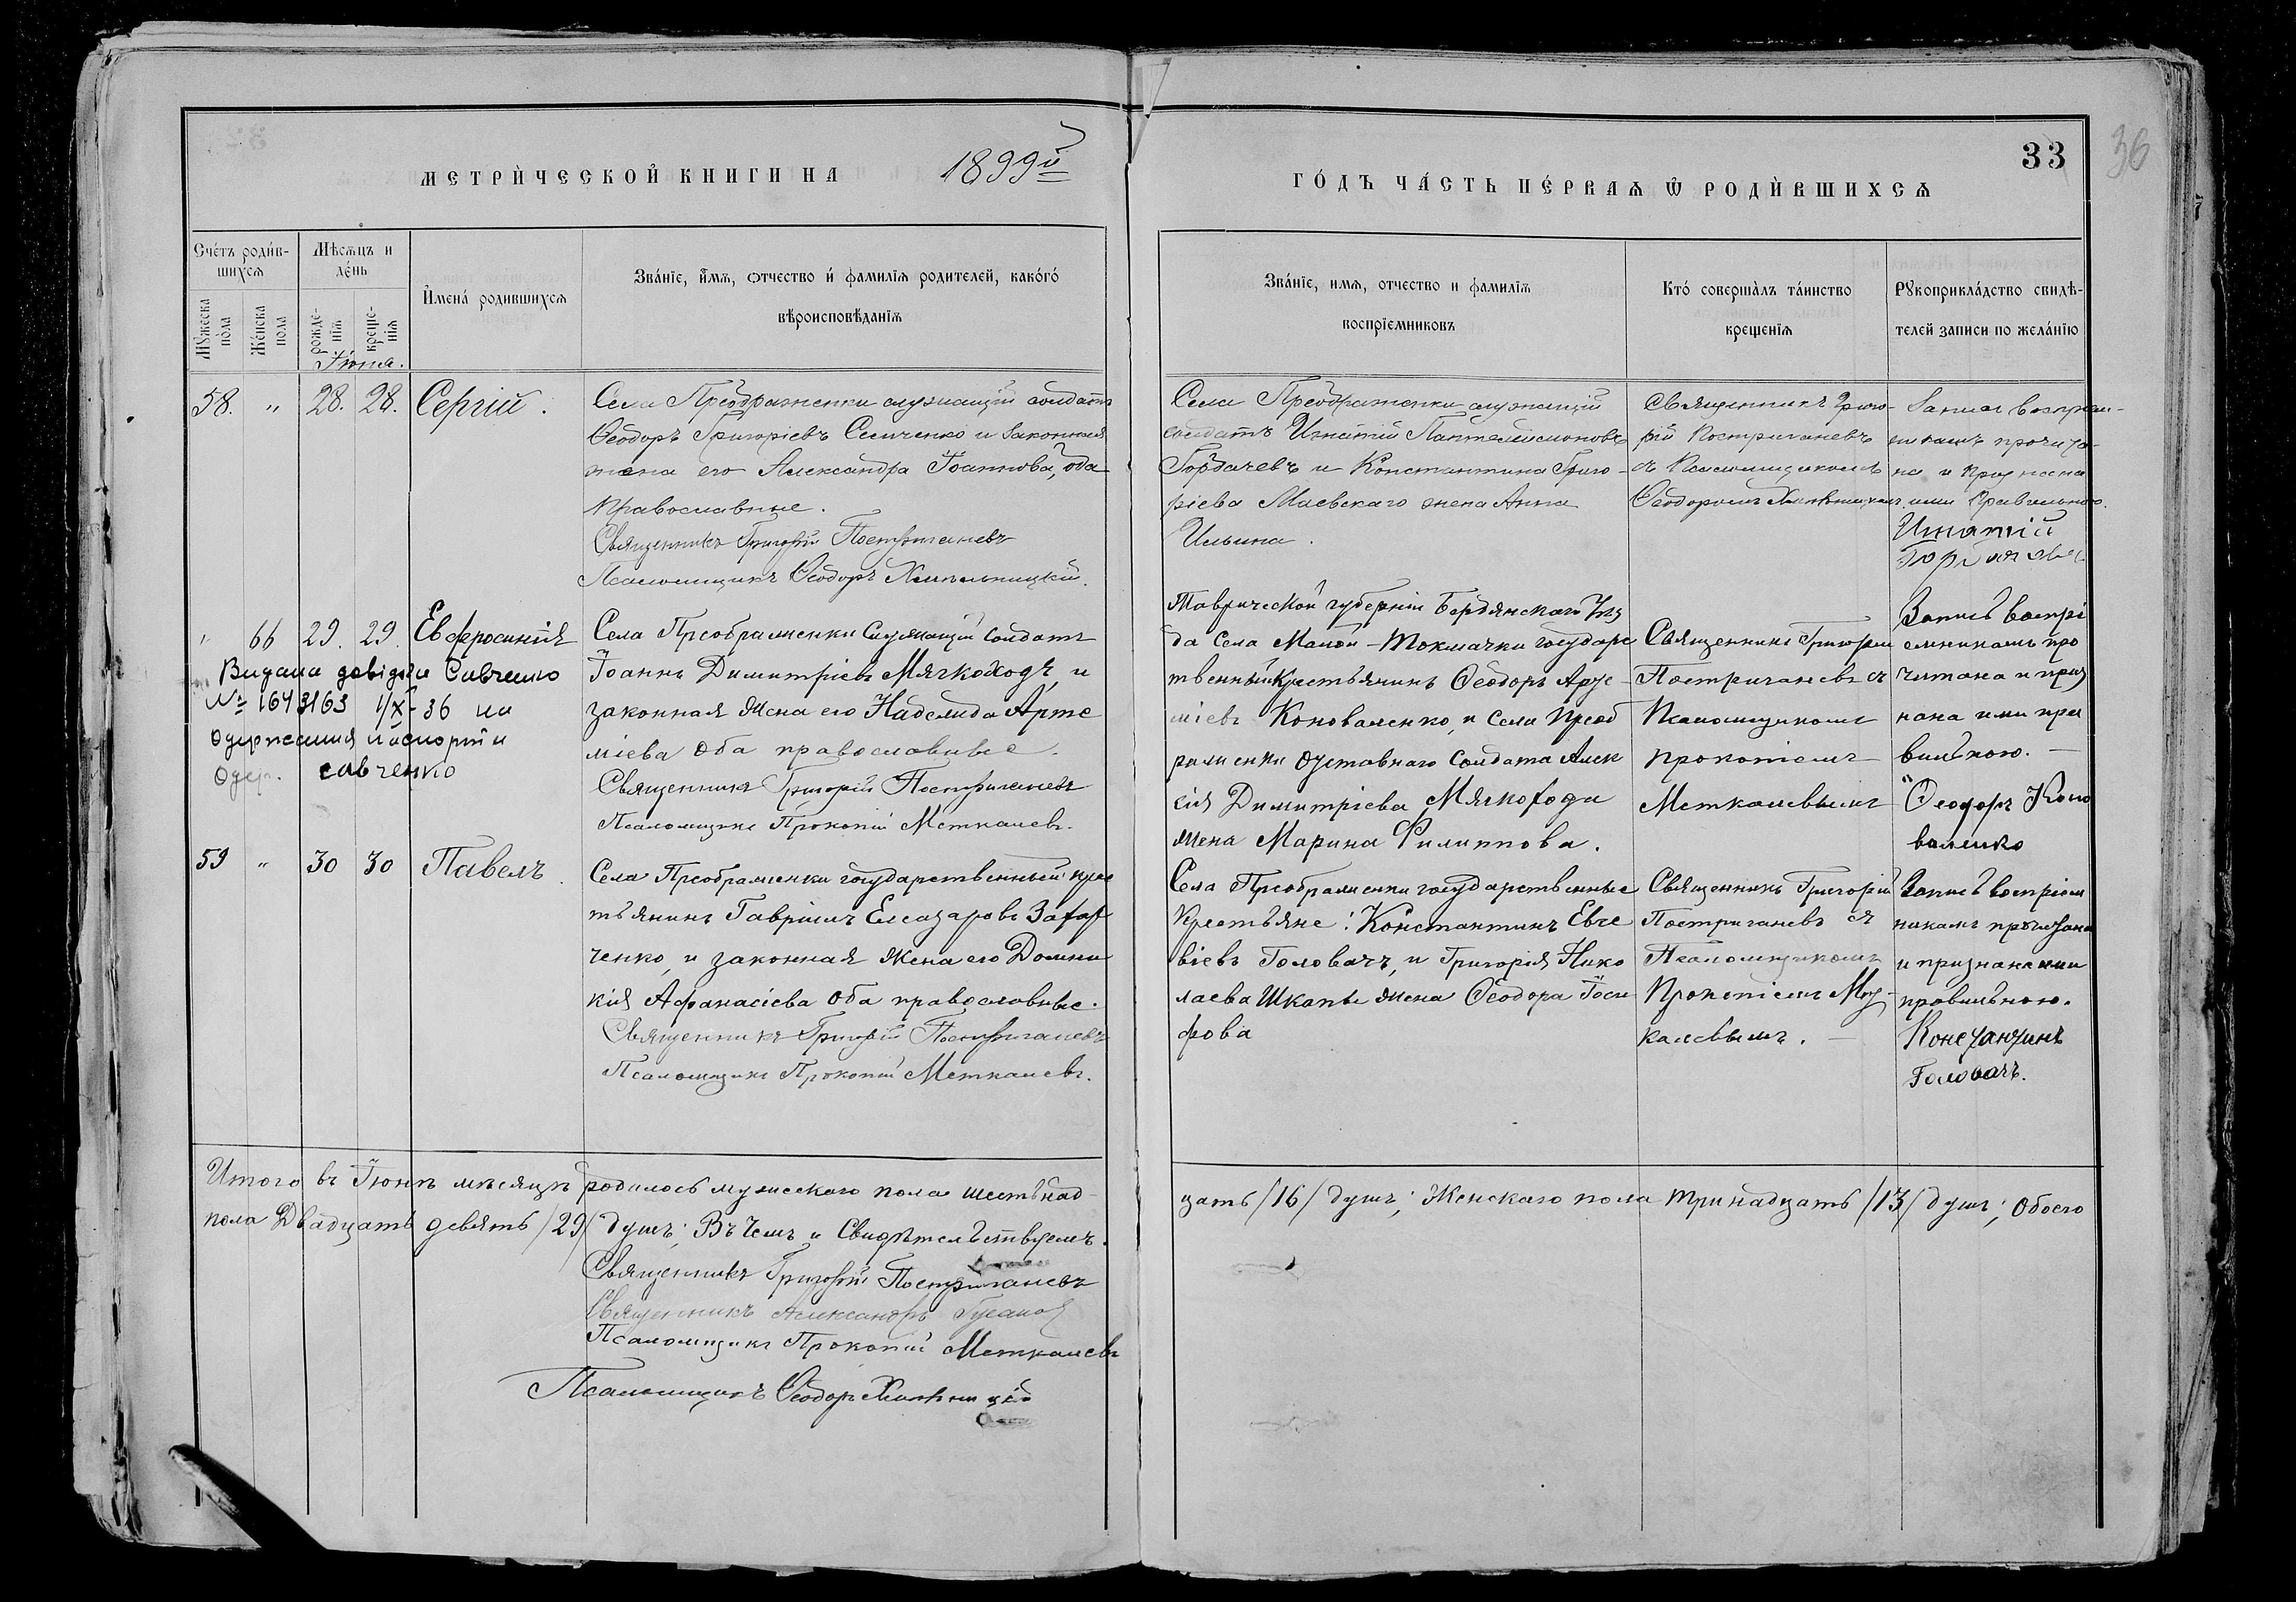 33
36
МЕТРИ́ЧЕСКОЙ КНИГИ НА 1899й
ГО́ДЪ ЧА́СТЬ ПЕ́РВАѦ Ѿ РОДИ́ВШИХСѦ
Сче́тъ роди́в-
шихсѧ
Мꙋжеска по́ла
Же́нска пола
Мѣсѧцъ и
де́нь
рожде-
нїѧ
креще-
нїѧ
Іюня.
И҆мена́ родившихсѧ
Зва́нїе, и҆́мѧ, ѻтчество и҆ фамилїѧ родителей, како́гѡ
вѣроисповѣданїѧ
Зва́нїе, имѧ, отчество и фамилїѧ
воспрїемниковъ
Кто́ соверша́лъ та́инство
крещенїѧ
Рꙋкоприкла́дство свидѣ-
телей записи по жела́нїю
58. " 28. 28. Сергій.
Села Преображенки служащій солдатъ
Ѳеодоръ Григоріевъ Семченко и законная
жена его Александра Іоаннова, оба
православные.
Священникъ Григорій Постригачевъ
Псаломщикъ Ѳеодоръ Хмѣльницкій.
Села Преображенки служащій
солдатъ Игнатій Пантелеимоновъ
Горбачевъ и Константина Григо-
ріева Маевскаго жена Анна
Ильина.
Священникъ Григо-
рій Постригачевъ
съ Псаломщикомъ
Ѳеодоромъ Хмѣльницкимъ.
Запись воспріем-
никамъ прочита-
на и признана
ими правильною.
Игнатій
Горбачевъ
" 66 29. 29. Евфросинія
Видана довідка Савченко
№ 1643163 1/X-36 на
одержания паспорти
Одер. савченко
Села Преображенки Служащій солдатъ
Іоаннъ Димитріевъ Мягкоходъ, и
законная жена его Надежда Арте
міева оба православные.
Священникъ Григорій Постригачевъ
Псаломщикъ Прокопій Меткалевъ.
Таврической губерніи Бердянскаго Уѣз
да Села Малой-Токмачки государс
твенный Крестьянинъ Ѳеодоръ Арте-
міевъ Коноваленко, и Села Преоб
раженки отставнаго Солдата Алек
сія Димитріева Мягкохода
жена Марина Филиппова.
Священникъ Григорій
Постригачевъ съ
Псаломщикомъ
Прокопіемъ
Меткалевымъ
Запись воспрі
емникамъ про
читана и приз
нана ими пра
вильною. —
Ѳеодоръ Коно
валенко
59 " 30 30 Павелъ.
Села Преображенки государственный крес
тьянинъ Гавріилъ Елеазаровъ Захар
ченко, и законная жена его Домни
кія Афанасіева оба православные.
Священникъ Григорій Постригачевъ
Псаломщикъ Прокопій Меткалевъ.
Села Преображенки государственные
Крестьяне: Константинъ Евге
віевъ Головачъ, и Григорія Нико
лаева Шкапы жена Ѳеодора Іоси
фова
Священникъ Григорій
Постригачевъ съ
Псаломщикомъ
Прокопіемъ Мет-
калевымъ. —
Запись воспріем
никамъ прочитана
и признана ими
правильною.
Константинъ
Головачъ.
Итого въ Іюнѣ мѣсяцѣ родилось мужескаго пола шестьнад-
цать /16/ душъ; Женскаго пола тринадцать /13/ душъ; Обоего
пола Двадцать девять /29/ душъ; Въ чемъ и Свидѣтельствуемъ.
Священникъ Григорій Постригачевъ
Священникъ Александръ
Псаломщикъ Прокопій Меткалевъ
Псаломщикъ Ѳеодоръ Хмѣльницкій